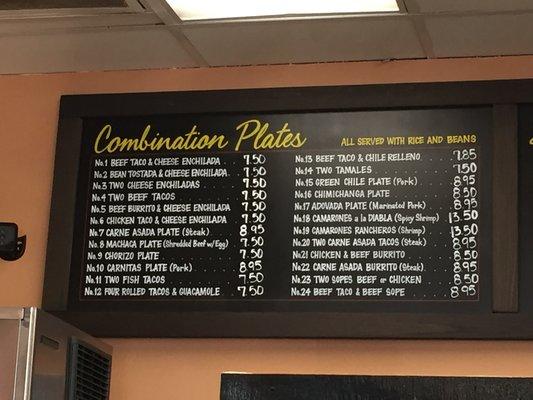 Combination Plates ALL SERVED WITH RICE AND BEANS
No.1 BEEF TACO & CHEESE ENCHILADA . . 7.50
No.2 BEAN TOSTADA & CHEESE ENCHILADA . 7.50
No.3 TWO CHEESE ENCHILADAS . . . . 7.50
No.4 TWO BEEF TACOS . . . . . . 7.50
No.5 BEEF BURRITO & CHEESE ENCHILADA 7.50
No.6 CHICKEN TACO & CHEESE ENCHILADA . 7.50
No.7 CARNE ASADA PLATE (Steak) . . . 8.95
No.8 MACHACA PLATE (Shredded Beef w/Egg) . 7.50
No.9 CHORIZO PLATE . . . . . . . 7.50
No.10 CARNITAS PLATE (Pork) . . . . 8.95
No.11 TWO FISH TACOS . . . . . . 7.50
No.12 FOUR ROLLED TACOS & GUACAMOLE . . 7.50
No.13 BEEF TACO & CHILE RELLENO . . . 7.85
No.14 TWO TAMALES . . . . . . . 7.50
No.15 GREEN CHILE PLATE (Pork) . . . . 8.95
No.16 CHIMICHANGA PLATE . . . . . 8.50
No.17 ADOVADA PLATE (Marinated Pork) . . 8.95
No.18 CAMARONES a la DIABLA (Spicy Shrimp) . 13.50
No.19 CAMARONES RANCHEROS (Shrimp) . . . 13.50
No.20 TWO CARNE ASADA TACOS (Steak) . . 8.95
No.21 CHICKEN & BEEF BURRITO . . . . 8.50
No.22 CARNE ASADA BURRITO (Steak) . . . 8.95
No.23 TWO SOPES BEEF or CHICKEN . . . 8.50
No.24 BEEF TACO & BEEF SOPE . . . . 8.95